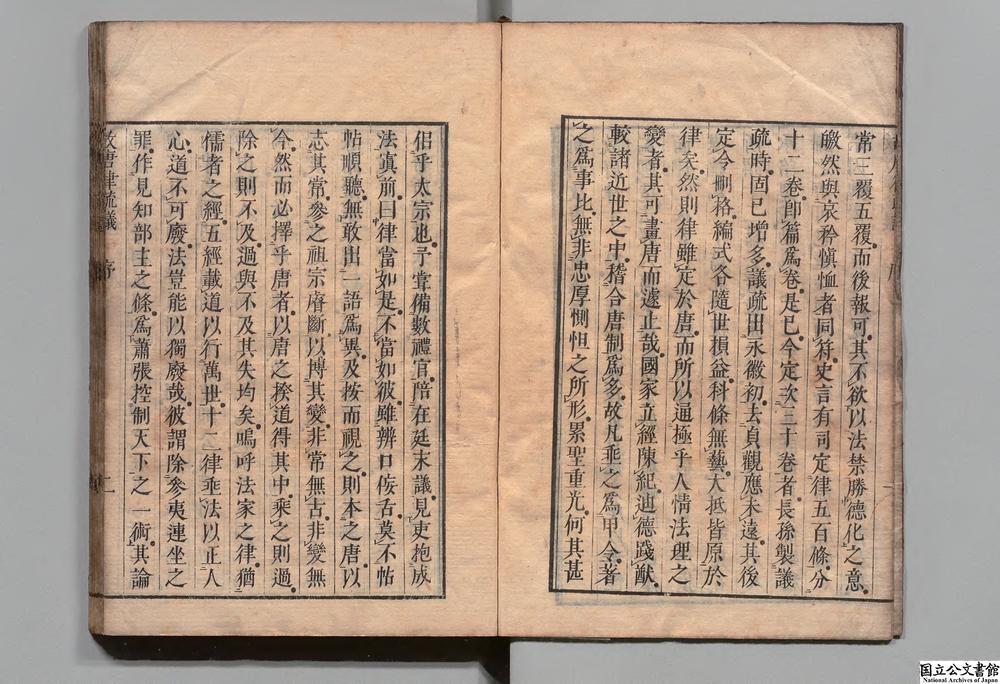 常三覆五覆而後報可其不欲以法禁勝德化之意
皦然與哀矜愼恤者同符史言有司定律五百條分
十二卷卽篇爲卷是已今定次三十卷者長孫製議
疏時固已增多議疏出永徽初去貞觀應未遠其後
定令刪格編式各隨世損益科條無藝大抵皆原於
律矣然則律雖定於唐而所以通極乎人情法理之
變者其可畫唐而遽止哉國家立經陳紀迪德踐猷
較諸近世之中稽合唐制爲多故凡乖之爲甲令著
之爲事比無非忠厚惻怛之所形累聖重光何其甚
侣乎太宗也予嘗備數禮官陪在廷末議見吏抱成
法寘前曰律當如是不當如彼雖辨口佞舌莫不帖
帖順聽無敢出一語爲異及按而視之則本之唐以
志其常參之祖宗睿斷以博其變非常無古非變無
今然而必擇乎唐者以唐之揆道得其中乘之則過
除之則不及過與不及其失均矣嗚呼法家之律猶
儒者之經五經載道以行萬世十二律垂法以正人
心道不可廢法豈能以獨廢哉彼謂除參夷連坐之
罪作見知部主之條爲蕭張控制天下之一術其論
故唐律疏議 序 二
国立公文書館
National Archives of Japan